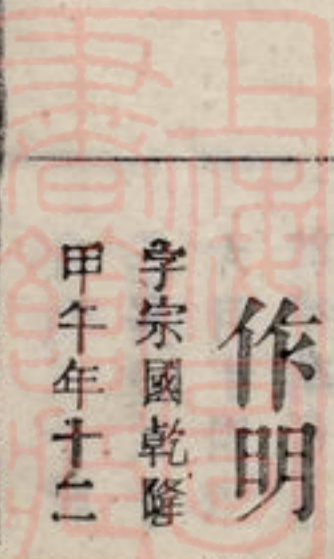 作明
字宗國乾隆
甲午年十二